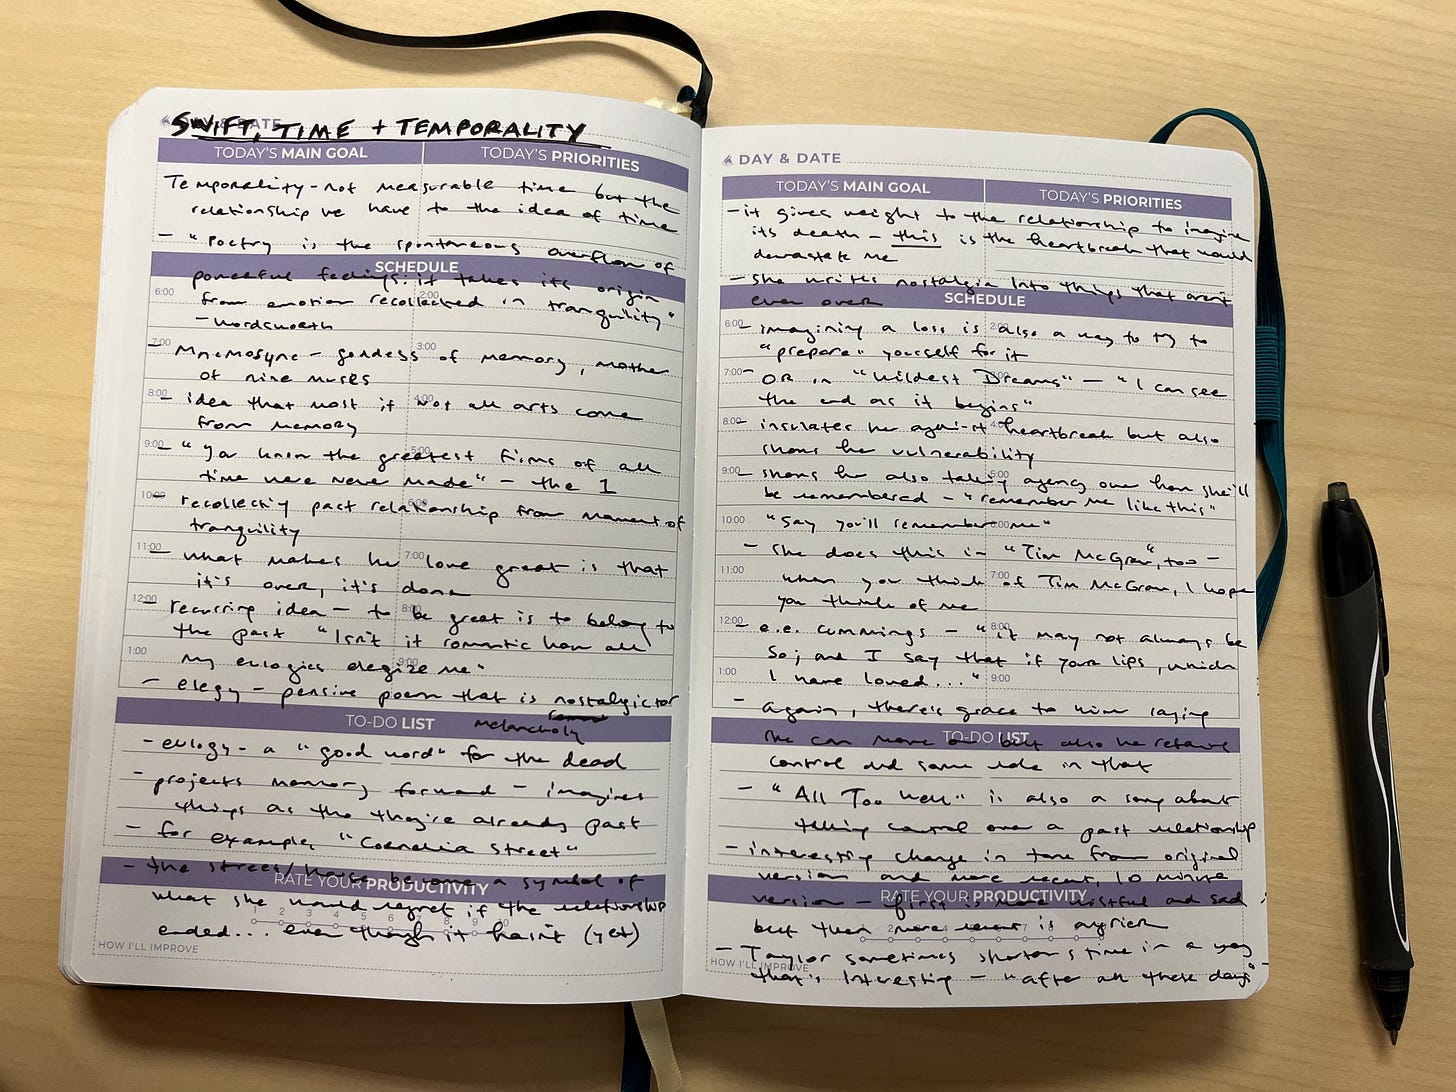 SWIFT, TIME + TEMPORALITY
DAY & DATE
TODAY'S MAIN GOAL
TODAY'S PRIORITIES
Temporality - not measurable time but the
relationship we have to the idea of time
- "Poetry is the spontaneous overflow of
SCHEDULE
powerful feelings: it takes its origin
6:00 2:00
from emotion recollected in tranquility"
- Wordsworth
7:00 3:00
Mnemosyne - goddess of memory, mother
of nine muses
8:00 4:00
- idea that most if not all arts come
from memory
9:00 5:00
- "you know the greatest films of all
time were never made" - the 1
10:00 6:00
- recollecting past relationship from moment of
tranquility
11:00 7:00
- what makes her love great is that
it's over, it's done
12:00 8:00
- recurring idea - to be great is to belong to
the past "Isn't it romantic how all
1:00 9:00
my eulogies elegize me"
- elegy - pensive poem that is nostalgic or
melancholy
TO-DO LIST
- eulogy - a "good word" for the dead
- projects memory forward - imagines
things as the they're already past
- for example, "Cornelia Street"
- the street/house become a symbol of
RATE YOUR PRODUCTIVITY
what she would regret if the relationship
1 2 3 4 5 6 7 8 9 10
ended... even though it hasn't (yet)
HOW I'LL IMPROVE
DAY & DATE
TODAY'S MAIN GOAL
TODAY'S PRIORITIES
- it gives weight to the relationship to imagine
its death - this is the heartbreak that would
devastate me
- she writes nostalgia into things that aren't
even over
SCHEDULE
6:00 2:00
- imagining a loss is also a way to try to
"prepare" yourself for it
7:00 3:00
- OR in "Wildest Dreams" - "I can see
the end as it begins"
8:00 4:00
- insulates her against heartbreak but also
shows her vulnerability
9:00 5:00
- shows her also taking agency over how she'll
be remembered - "remember me like this"
10:00 6:00
"Say you'll remember me"
- she does this in "Tim McGraw", too -
11:00 7:00
when you think of Tim McGraw, I hope
you think of me
12:00 8:00
- e.e. cummings - "it may not always be
so; and I say that if your lips, which
1:00 9:00
I have loved..."
- again, there's grace to him saying
she can move on but also he retains
TO-DO LIST
control and some role in that
- "All Too Well" is also a song about
telling control over a past relationship
- interesting change in tone from original
version and more recent, 10 minute
RATE YOUR PRODUCTIVITY
version - first is more wistful and sad
but then more recent is angrier
2 4 7
- Taylor sometimes shortens time in a way
HOW I'LL IMPROVE
that's interesting - "after all these days"